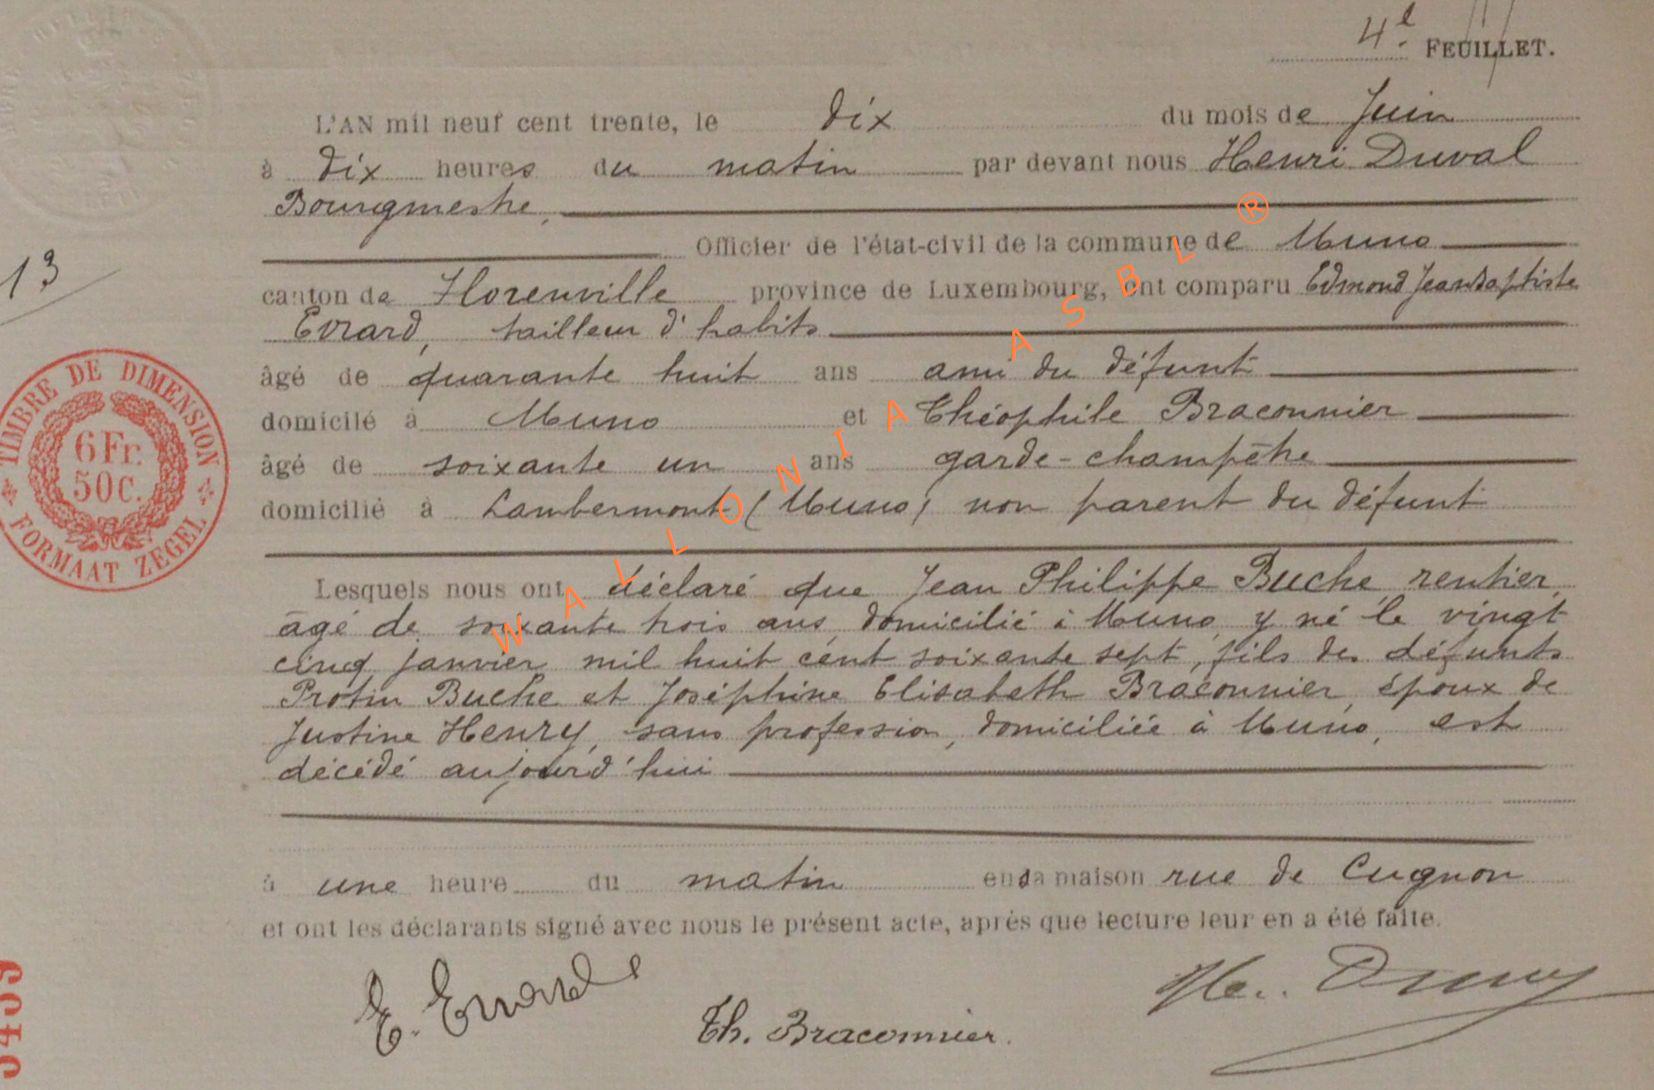 4e FEUILLET.
L'AN mil neuf cent trente, le dix du mois de Juin
à dix heures du matin par devant nous Henri Duval
Bourgmestre,
Officier de l'état-civil de la commune de Muno
13
canton de Florenville province de Luxembourg, ont comparu Edmond Jean Baptiste
Evrard, tailleur d'habits
âgé de quarante huit ans ami du défunt
domicilé à Muno et Théophile Braconnier
âgé de soixante un ans garde-champêtre
domicilié à Lambermont (Muno) non parent du défunt
TIMBRE DE DIMENSION
6 Fr.
50 C.
FORMAAT ZEGEL
Lesquels nous ont déclaré que Jean Philippe Buche rentier,
âgé de soixante trois ans, domicilié à Muno, y né le vingt
cinq janvier mil huit cent soixante sept, fils des défunts
Protin Buche et Joséphine Elisabeth Braconnier, époux de
Justine Henry, sans profession, domiciliée à Muno, est
décédé aujourd'hui
à une heure du matin en sa maison rue de Cugnon
et ont les déclarants signé avec nous le présent acte, après que lecture leur en a été faite.
E. Evrard
Th. Braconnier.
WALLONIA ASBL ®